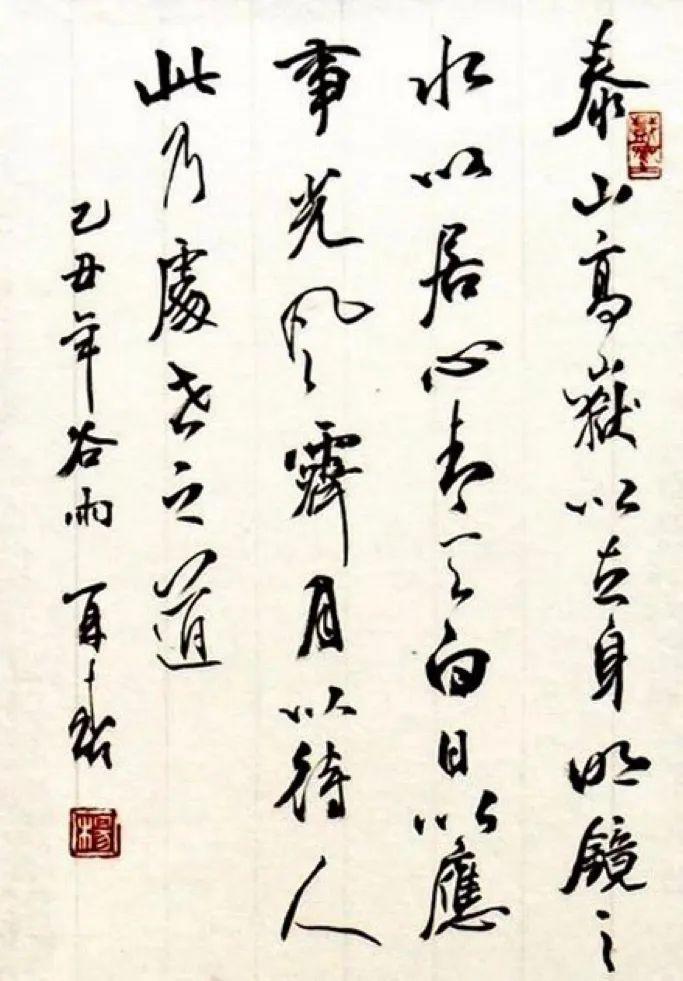 泰山高嶽以立身明鏡止
水以居心青天白日以應
事光风霽月以待人
此乃處世之道
己丑年谷雨
楊